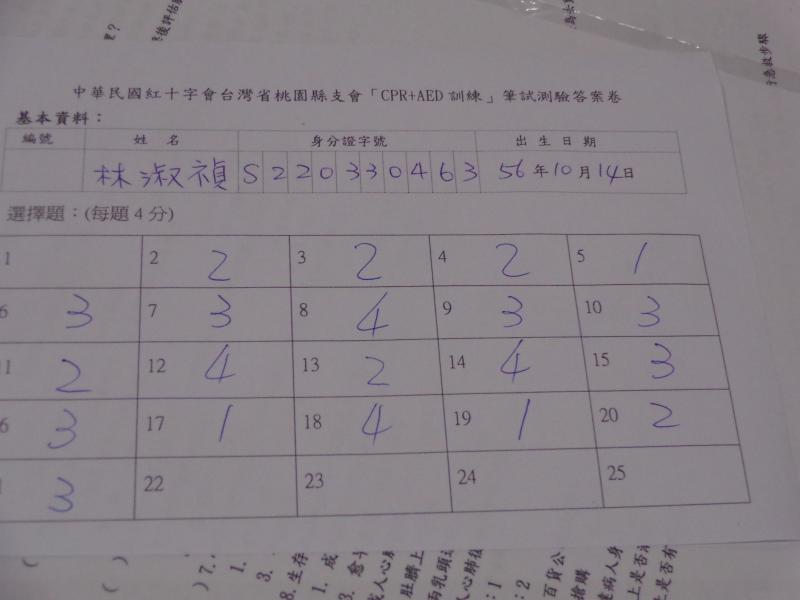 中華民國紅十字會台灣省桃園縣支會「CPR+AED 訓練」筆試測驗答案卷
基本資料：
編號 姓 名 身分證字號 出 生 日 期
林淑禎 S 2 2 0 3 3 0 4 6 3 56 年 10 月 14 日
選擇題：(每題 4 分)
1 2 2 3 2 4 2 5 1
6 3 7 3 8 4 9 3 10 3
1 2 12 4 13 2 14 4 15 3
6 3 17 1 18 4 19 1 20 2
3 22 23 24 25